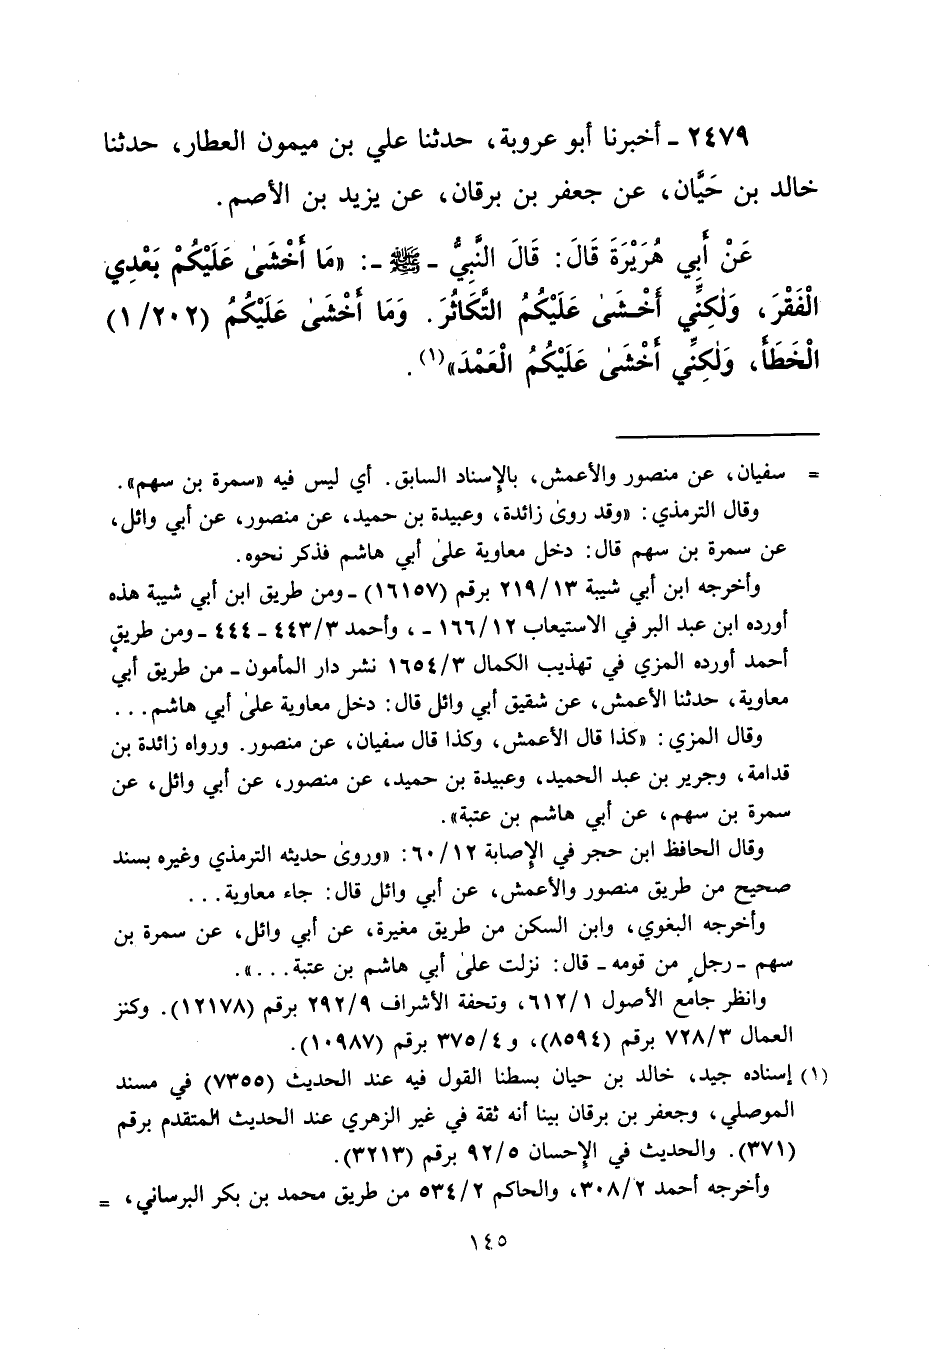 ٢٤٧٩ ـ أخبرنا أبو عروبة، حدثنا علي بن ميمون العطار، حدثنا
خالد بن حَيَّان، عن جعفر بن برقان، عن يزيد بن الأصم.
عَنْ أَبِي هُرَيْرَةَ قَالَ: قَالَ النَّبِيُّ ـ ﷺ ـ: «مَا أَخْشَىٰ عَلَيْكُمْ بَعْدِي
الْفَقْرَ، وَلٰكِنِّي أَخْشَىٰ عَلَيْكُمُ التَّكَاثُرَ. وَمَا أَخْشَىٰ عَلَيْكُمُ (١/٢٠٢)
الْخَطَأَ، وَلٰكِنِّي أَخْشَىٰ عَلَيْكُمُ الْعَمْدَ»(١).
= سفيان، عن منصور والأعمش، بالإسناد السابق. أي ليس فيه «سمرة بن سهم».
وقال الترمذي: «وقد روىٰ زائدة، وعبيدة بن حميد، عن منصور، عن أبي وائل،
عن سمرة بن سهم قال: دخل معاوية علىٰ أبي هاشم فذكر نحوه.
وأخرجه ابن أبي شيبة ٢١٩/١٣ برقم (١٦١٥٧) ـ ومن طريق ابن أبي شيبة هذه
أورده ابن عبد البر في الاستيعاب ١٦٦/١٢ ـ، وأحمد ٤٤٣/٣ ـ ٤٤٤ ـ ومن طريق
أحمد أورده المزي في تهذيب الكمال ١٦٥٤/٣ نشر دار المأمون ـ من طريق أبي
معاوية، حدثنا الأعمش، عن شقيق أبي وائل قال: دخل معاوية علىٰ أبي هاشم...
وقال المزي: «كذا قال الأعمش، وكذا قال سفيان، عن منصور. ورواه زائدة بن
قدامة، وجرير بن عبد الحميد، وعبيدة بن حميد، عن منصور، عن أبي وائل، عن
سمرة بن سهم، عن أبي هاشم بن عتبة».
وقال الحافظ ابن حجر في الإصابة ٦٠/١٢: «وروىٰ حديثه الترمذي وغيره بسند
صحيح من طريق منصور والأعمش، عن أبي وائل قال: جاء معاوية...
وأخرجه البغوي، وابن السكن من طريق مغيرة، عن أبي وائل، عن سمرة بن
سهم ـ رجلٍ من قومه ـ قال: نزلت علىٰ أبي هاشم بن عتبة...».
وانظر جامع الأصول ٦١٢/١، وتحفة الأشراف ٢٩٢/٩ برقم (١٢١٧٨). وكنز
العمال ٧٢٨/٣ برقم (٨٥٩٤)، و ٣٧٥/٤ برقم (١٠٩٨٧).
(١) إسناده جيد، خالد بن حيان بسطنا القول فيه عند الحديث (٧٣٥٥) في مسند
الموصلي، وجعفر بن برقان بينا أنه ثقة في غير الزهري عند الحديث المتقدم برقم
(٣٧١). والحديث في الإحسان ٩٢/٥ برقم (٣٢١٣).
وأخرجه أحمد ٣٠٨/٢، والحاكم ٥٣٤/٢ من طريق محمد بن بكر البرساني، =
١٤٥